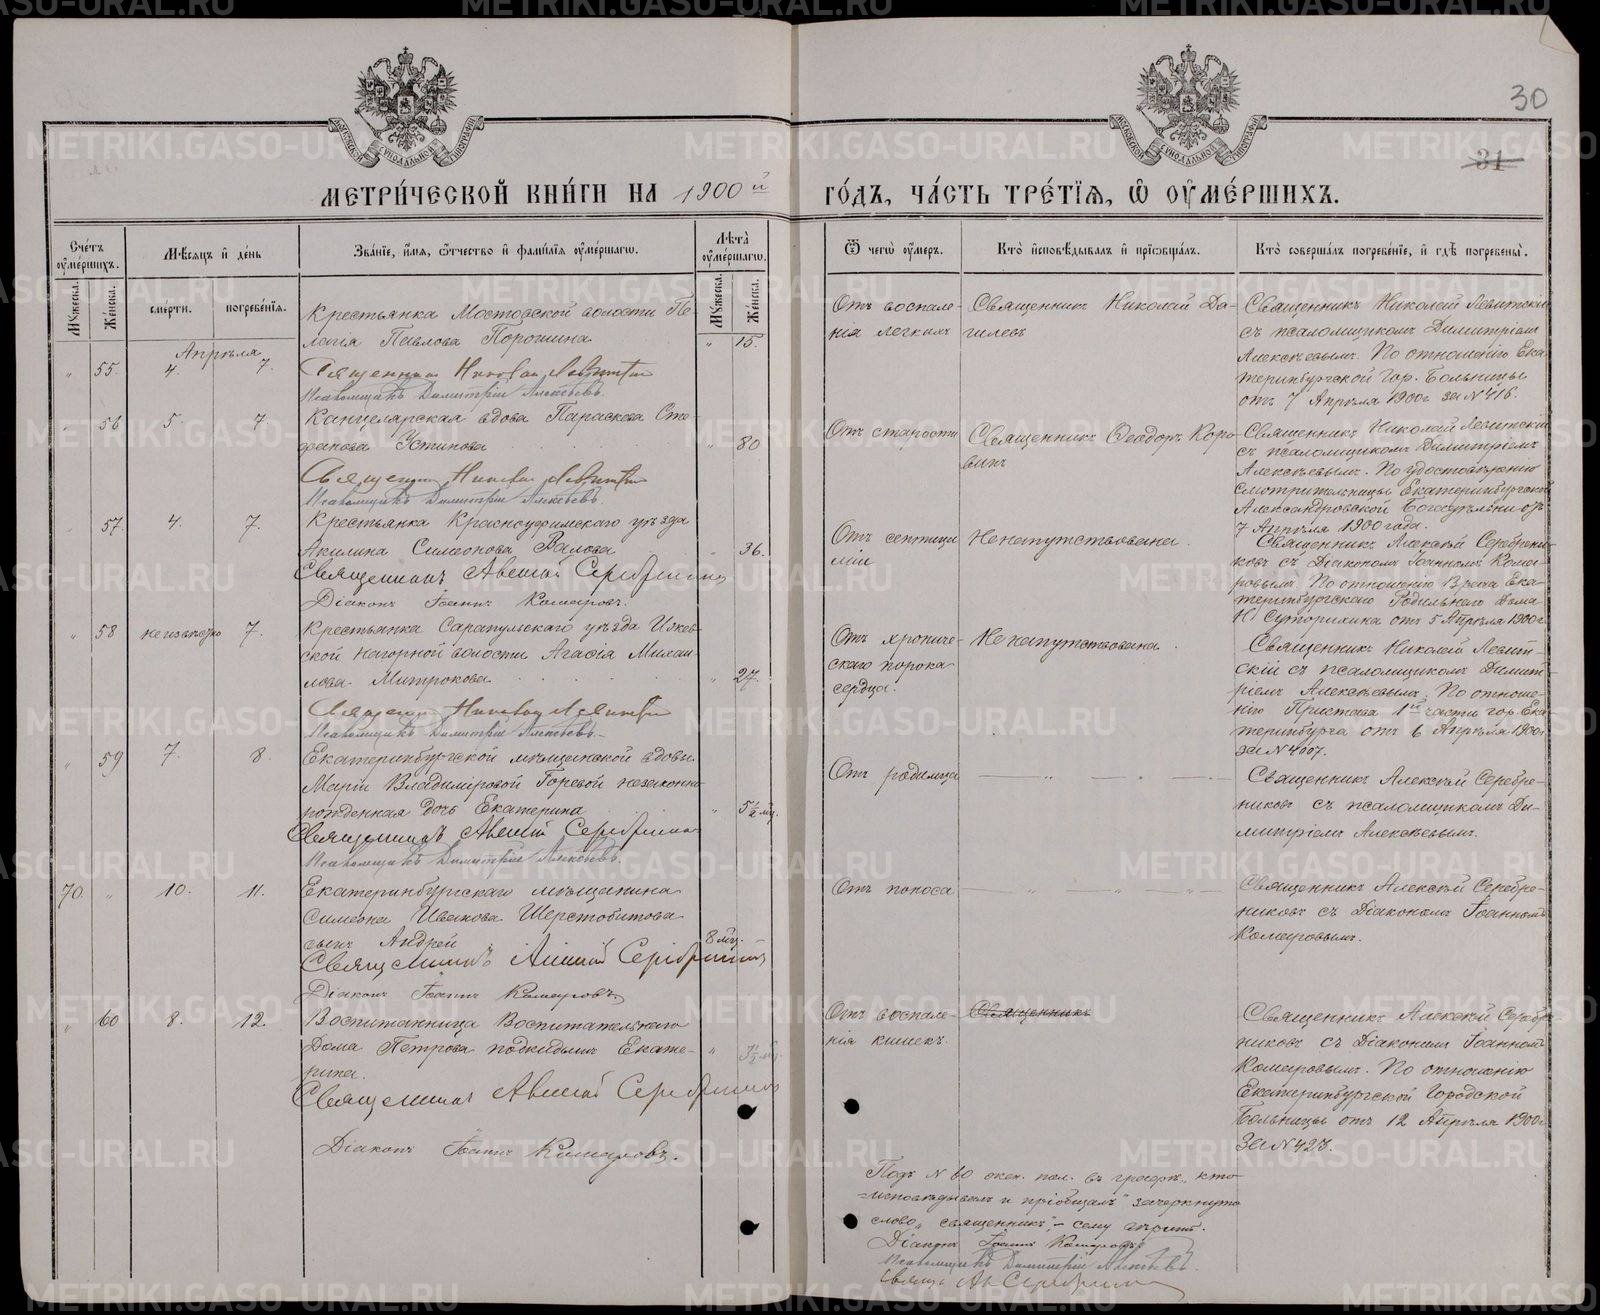 30
31
МЕТРИ́ЧЕСКОЙ КНИ́ГИ НА 1900й ГО́ДЪ, ЧА́СТЬ ТРЕ́ТІѦ, Ѿ ОУМЕ́РШИХЪ.
Сче́тъ оуме́ршихъ.
Мѣсяцъ и день
Зва́ніе, и́мя, о́тчество и фами́лія оуме́ршагѡ.
Лѣта оуме́ршагѡ.
Ѿ чегѡ̀ оу́меръ.
Кто̀ исповѣ́дывалъ и пріѡбща́лъ.
Кто̀ соверша́лъ погребе́ніе, и гдѣ̀ погребены̀.
Мужеска.
Женска.
сме́рти.
погребе́нія.
Мужеска.
Женска.
Апрѣля
" 55. 4. 7.
Крестьянка Мостовской волости Пе-
лагія Павлова Порошина
" 15.
Священник Николай Левитский
Псаломщикъ Димитрій Алексѣевъ.
Отъ воспале-
нія легкихъ
Священникъ Николай Да-
гилевъ
Священникъ Николай Левитскій
съ псаломщикомъ Димитріемъ
Алексѣевымъ. По отношенію Ека-
теринбургской Гор. Больницы
отъ 7 Апрѣля 1900г за N 416.
56 5. 7.
Канцелярская вдова Параскева Сте-
фанова Устинова
" 80
Священник Николай Левитский
Псаломщикъ Димитрій Алексѣевъ.
Отъ старости
Священникъ Ѳеодоръ Коро-
винъ
Священникъ Николай Левитскій
съ псаломщикомъ Димитріемъ
Алексѣевымъ. По удостовѣренію
смотрительницы Екатеринбургской
Александровской Богадѣльни отъ
7 Апрѣля 1900 года.
57. 4. 7.
Крестьянка Красноуфимскаго уѣзда
Акилина Симеонова Валова
" 36.
Священникъ Алексѣй Серебренниковъ
Діаконъ Іоаннъ Комаровъ.
Отъ септице
міи
Ненапутствована.
Священникъ Алексѣй Серебрени-
ковъ съ Діакономъ Іоанномъ Кома-
ровымъ. По отношенію Врача Ека-
теринбургскаго Родильнаго Дома
Н Суторихина отъ 5 Апрѣля 1900г
" 58 неизвѣстно 7.
Крестьянка Сарапульскаго уѣзда Ижев-
ской Нагорной волости Агафія Михаи-
лова Митрокова
" 27.
Священник Николай Левитский
Псаломщикъ Димитрій Алексѣевъ.
Отъ хрониче-
скаго порока
сердца.
Ненапутствована.
Священникъ Николай Левит-
скій съ псаломщикомъ Димит-
ріемъ Алексѣевымъ. По отноше-
нію Пристава 1й части гор. Ека-
теринбурга отъ 6 Апрѣля 1900г
за N 4007.
" 59 7. 8.
Екатеринбургской мѣщанской вдовы
Маріи Владиміровой Горевой незаконно
рожденная дочь Екатерина
" 5½ мц.
Священникъ Алексѣй Серебренниковъ
Псаломщикъ Димитрій Алексѣевъ.
Отъ родимца
Священникъ Алексѣй Серебре-
никовъ съ псаломщикомъ Ди-
митріемъ Алексѣевымъ.
70. " 10. 11.
Екатеринбургскаго мѣщанина
Симеона Иванова Шерстобитова
сынъ Андрей
8 мц.
Священникъ Алексѣй Серебренниковъ
Діаконъ Іоаннъ Комаровъ
Отъ поноса
Священникъ Алексѣй Серебре-
никовъ съ Діакономъ Іоанномъ
Комаровымъ.
" 60 8. 12.
Воспитанница Воспитательнаго
Дома Петрова подкидышъ Екате-
рина.
Священникъ Алексѣй Серебренниковъ
Діаконъ Іоаннъ Комаровъ.
Отъ воспале-
нія кишекъ.
Священникъ
Священникъ Алексѣй Серебре-
никовъ съ Діакономъ Іоанномъ
Комаровымъ. По отношенію
Екатеринбургской Городской
Больницы отъ 12 Апрѣля 1900г
за N 428.
Подъ N 60 жен. пол. въ графѣ „кто
исповѣдывалъ и пріобщалъ" зачеркнуто
слово „священникъ", – сему вѣрить.
Діаконъ Іоаннъ Комаровъ
Псаломщикъ Димитрій Алексѣевъ.
Свящ. Ал Серебренниковъ
METRIKI.GASO-URAL.RU